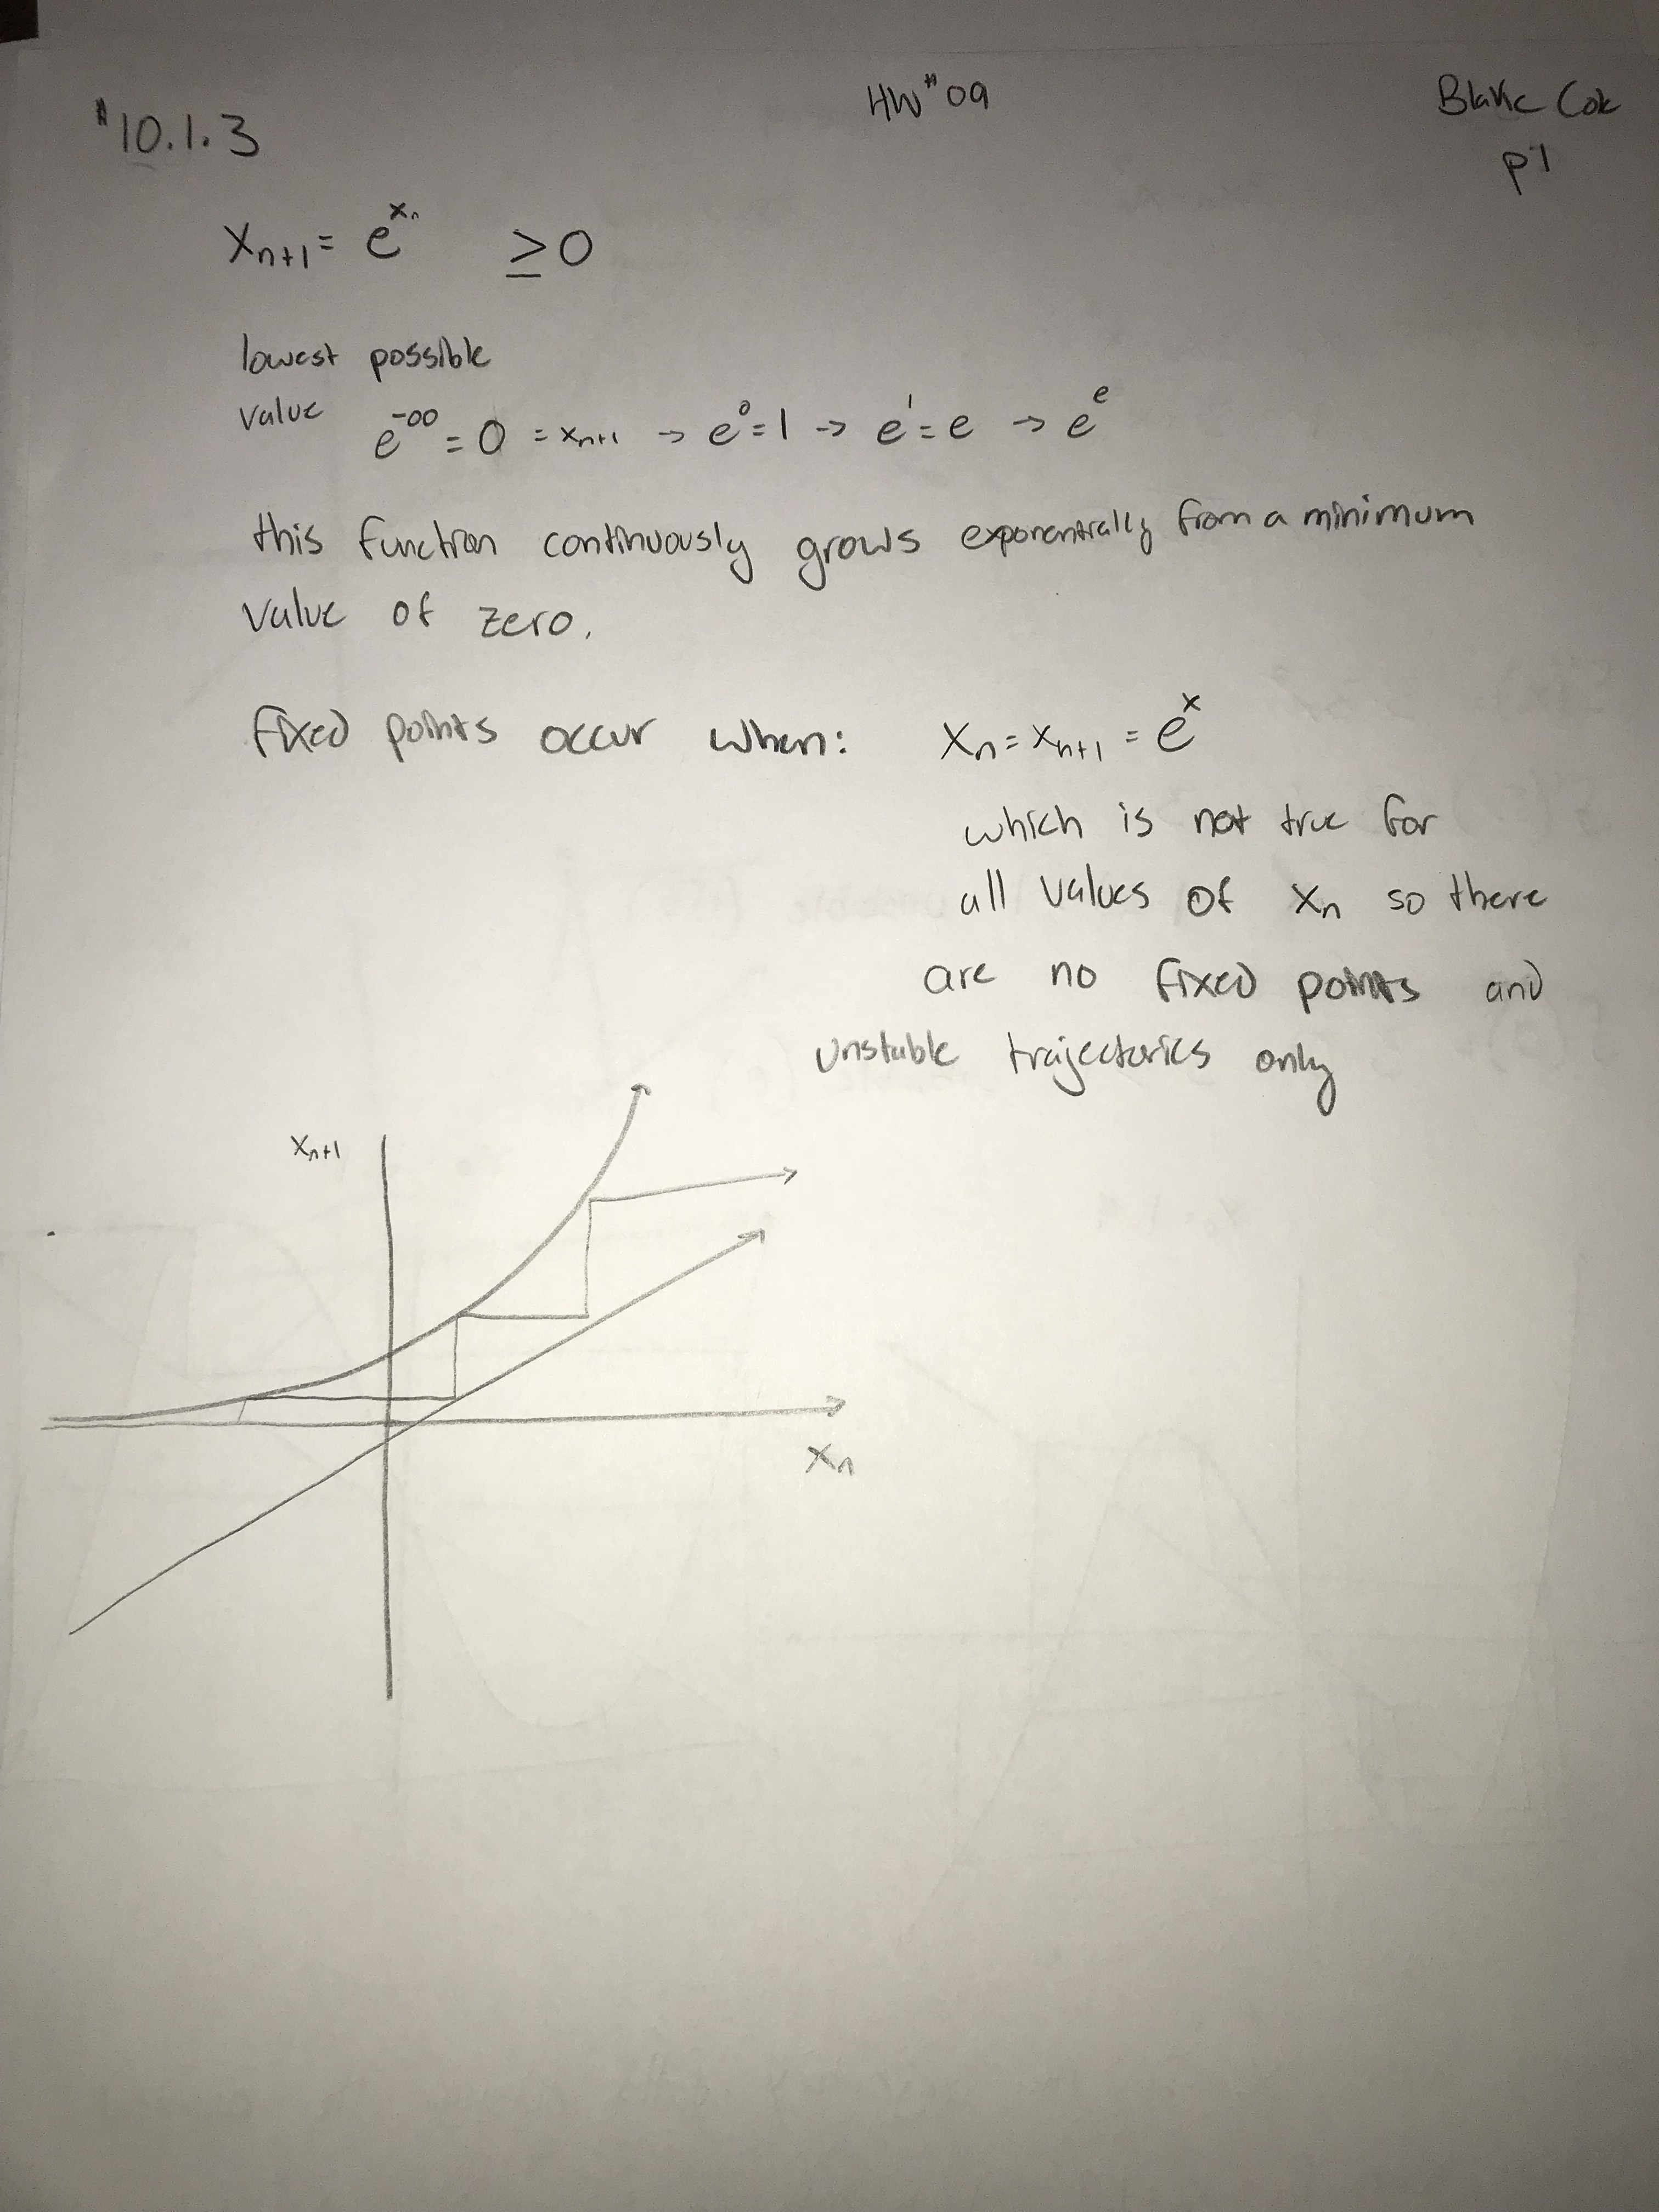 #10.1.3
HW#09
Blake Cole
p1
xₙ₊₁ = e^xₙ ≥0
lowest possible
value e^-∞ = 0 = xₙ₊₁ → e^0 = 1 → e^1 = e → e^e
this function continuously grows exponentially from a minimum
value of zero.
fixed points occur when: xₙ = xₙ₊₁ = e^x
which is not true for
all values of xₙ so there
are no fixed points and
unstable trajectories only
xₙ₊₁
xₙ